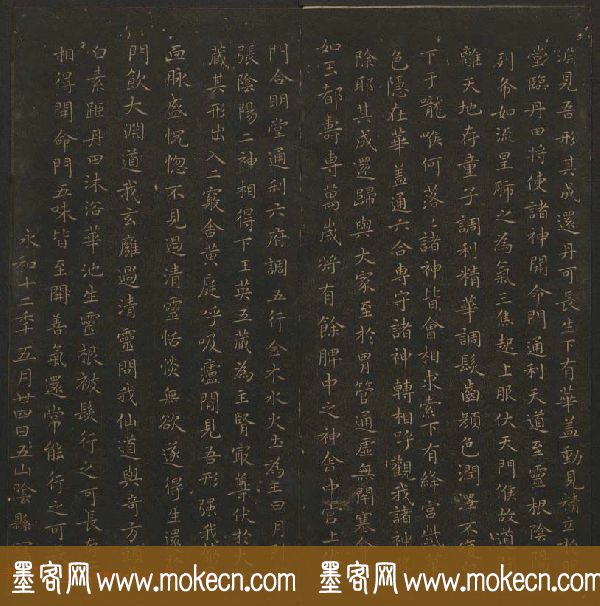 淵見吾形其成還丹可長生下有華蓋動見精立於明
堂臨丹田將使諸神開命門通利天道至靈根陰陽
列布如流星肺之為氣三焦起上服伏天門候故道
離天地存童子調利精華調髮齒顏色潤澤不復
下于嚨喉何落落諸神皆會相求索下有絳宮
色隱在華蓋通六合專守諸神轉相呼觀我諸神
除耶其成還歸與大家至於胃管通虛無閉塞命
如玉都壽專萬歲將有餘脾中之神舍中宮上
門合明堂通利六府調五行金木水火土為王日月列
張陰陽二神相得下玉英五藏為主腎最尊伏於大
藏其形出入二竅舍黃庭呼吸廬間見吾形強我
血脉盛怳惚不見過清靈恬惔無欲遂得生還於
門飲大淵道我玄廱過清靈問我仙道與奇方
白素距丹田沐浴華池生靈根被髮行之可長存
相得開命門五味皆至開善氣還常能行之可
永和十二年五月廿四日五山陰縣
墨客网 www.mokecn.com 墨客网 www.mokecn.com